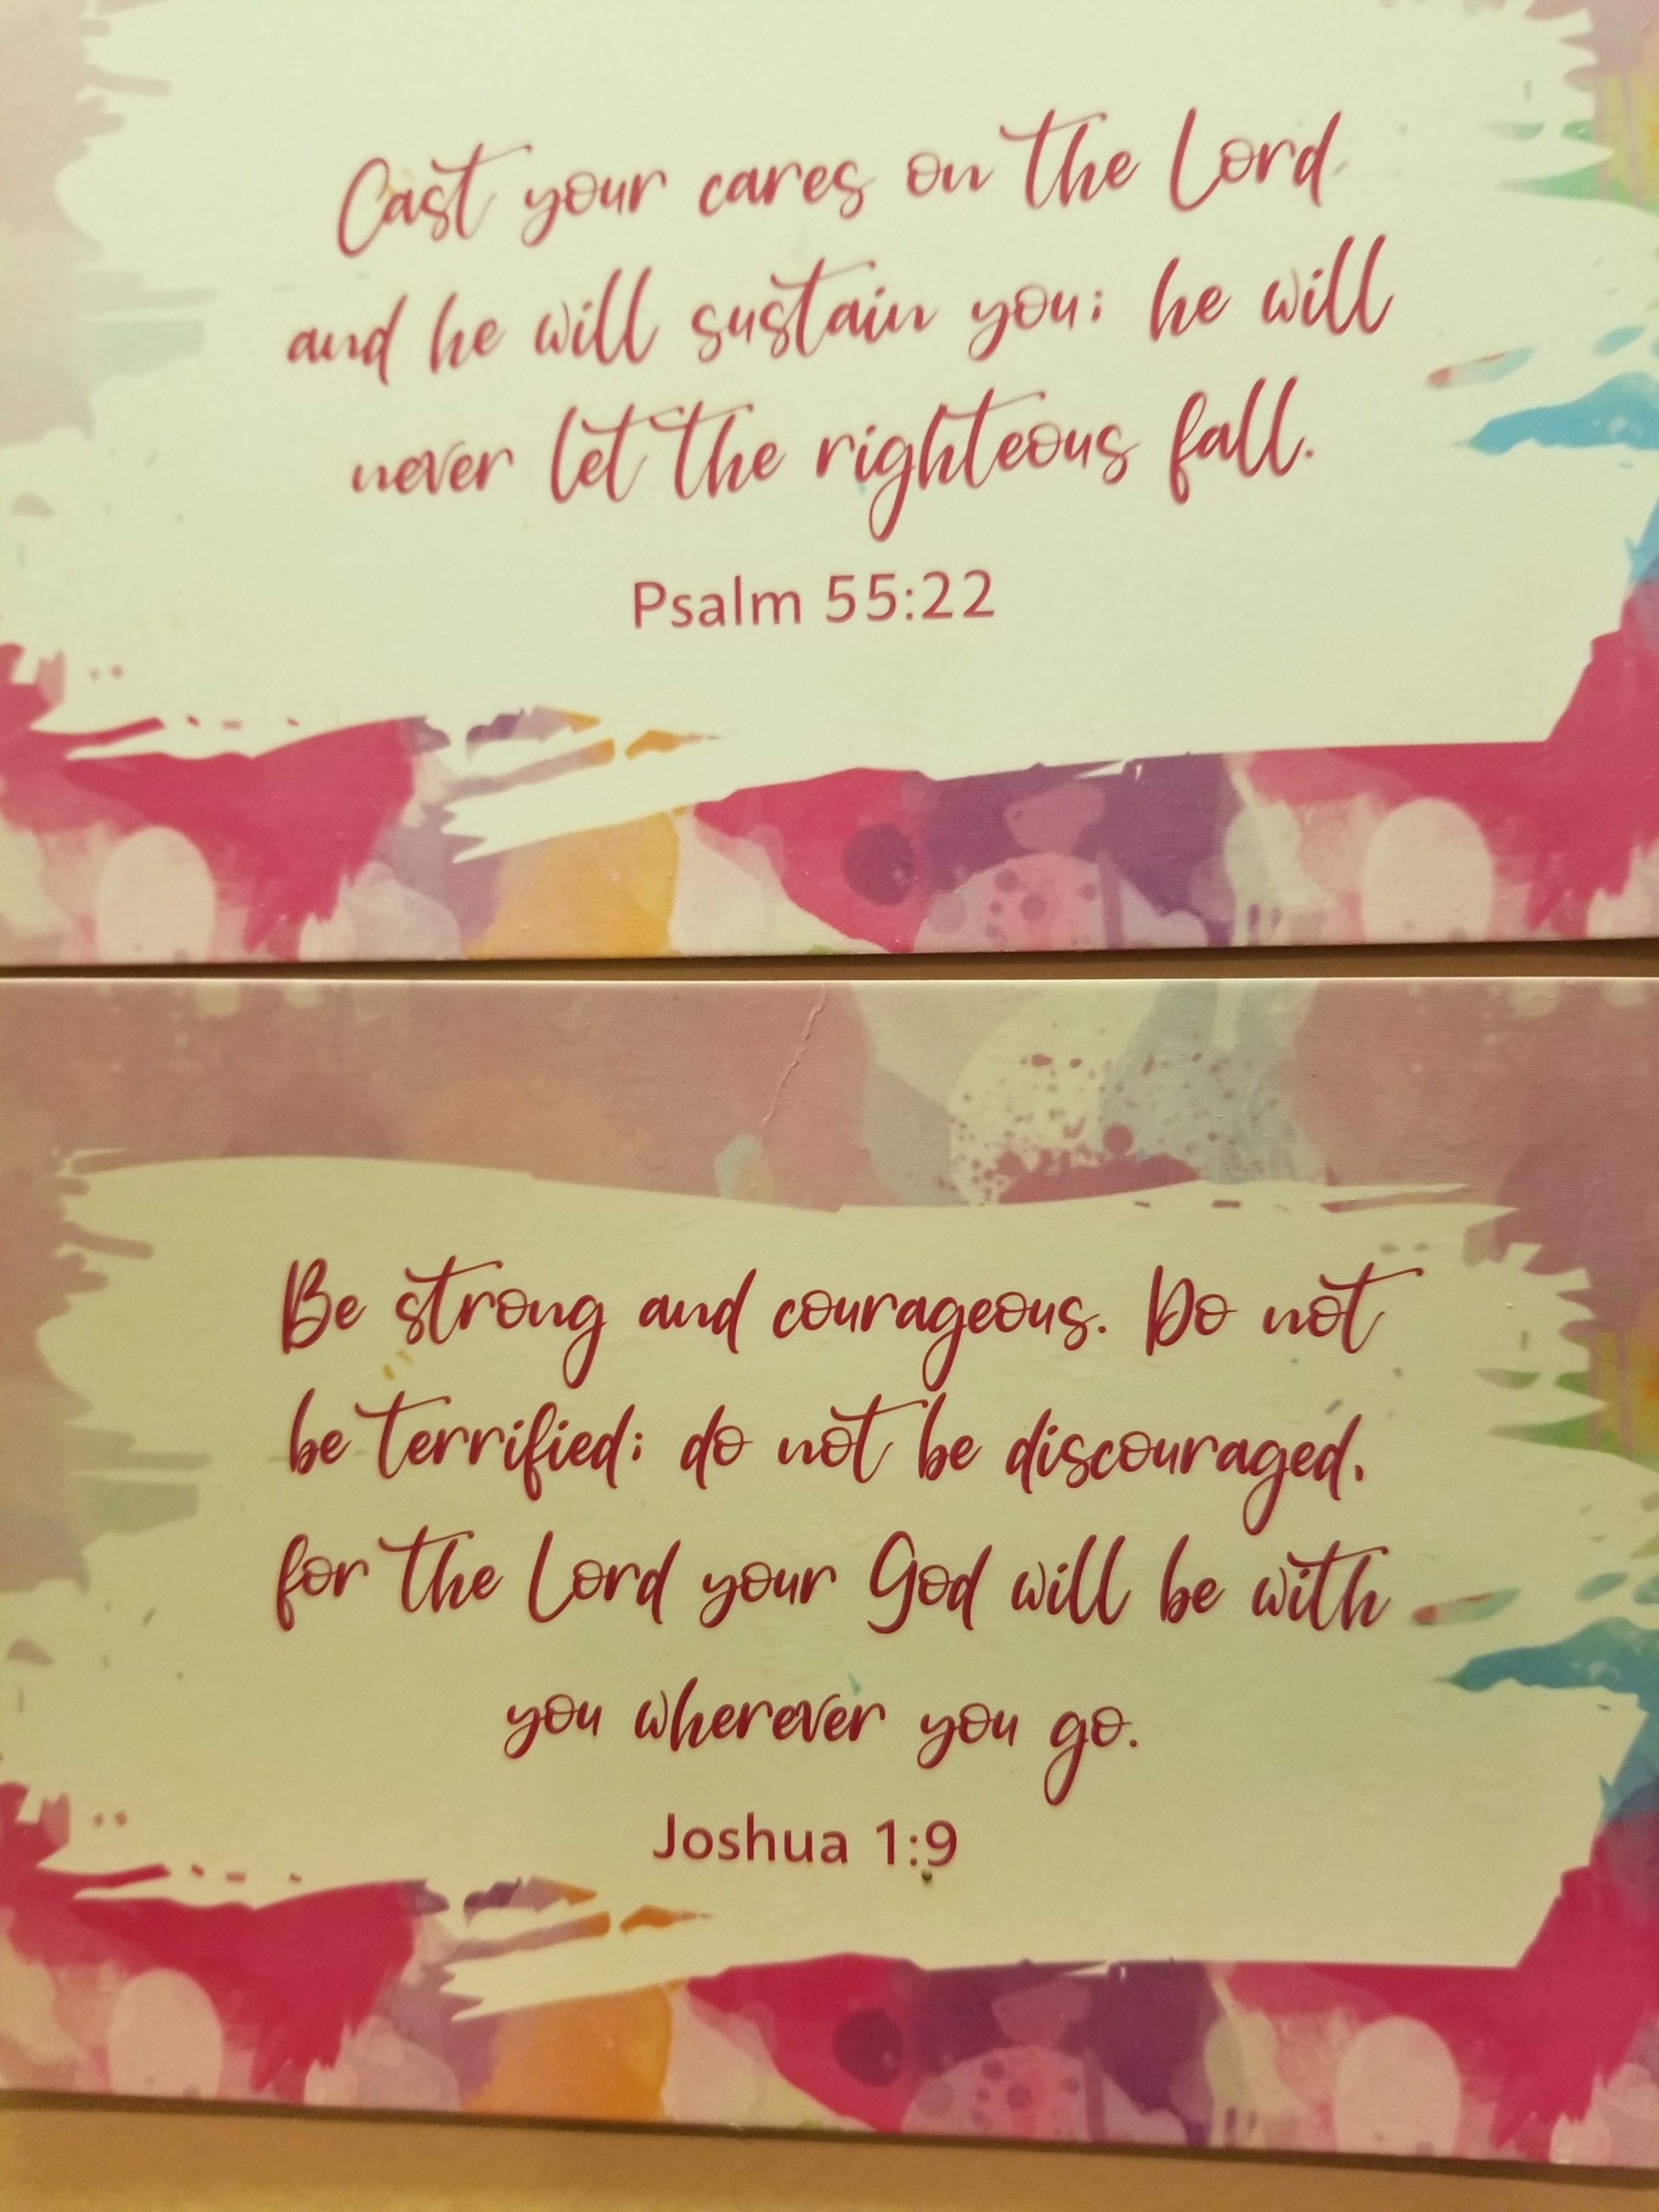 Cast your cares on the Lord
and he will sustain you; he will
never let the righteous fall.
Psalm 55:22
Be strong and courageous. Do not
be terrified; do not be discouraged,
for the Lord your God will be with
you wherever you go.
Joshua 1:9